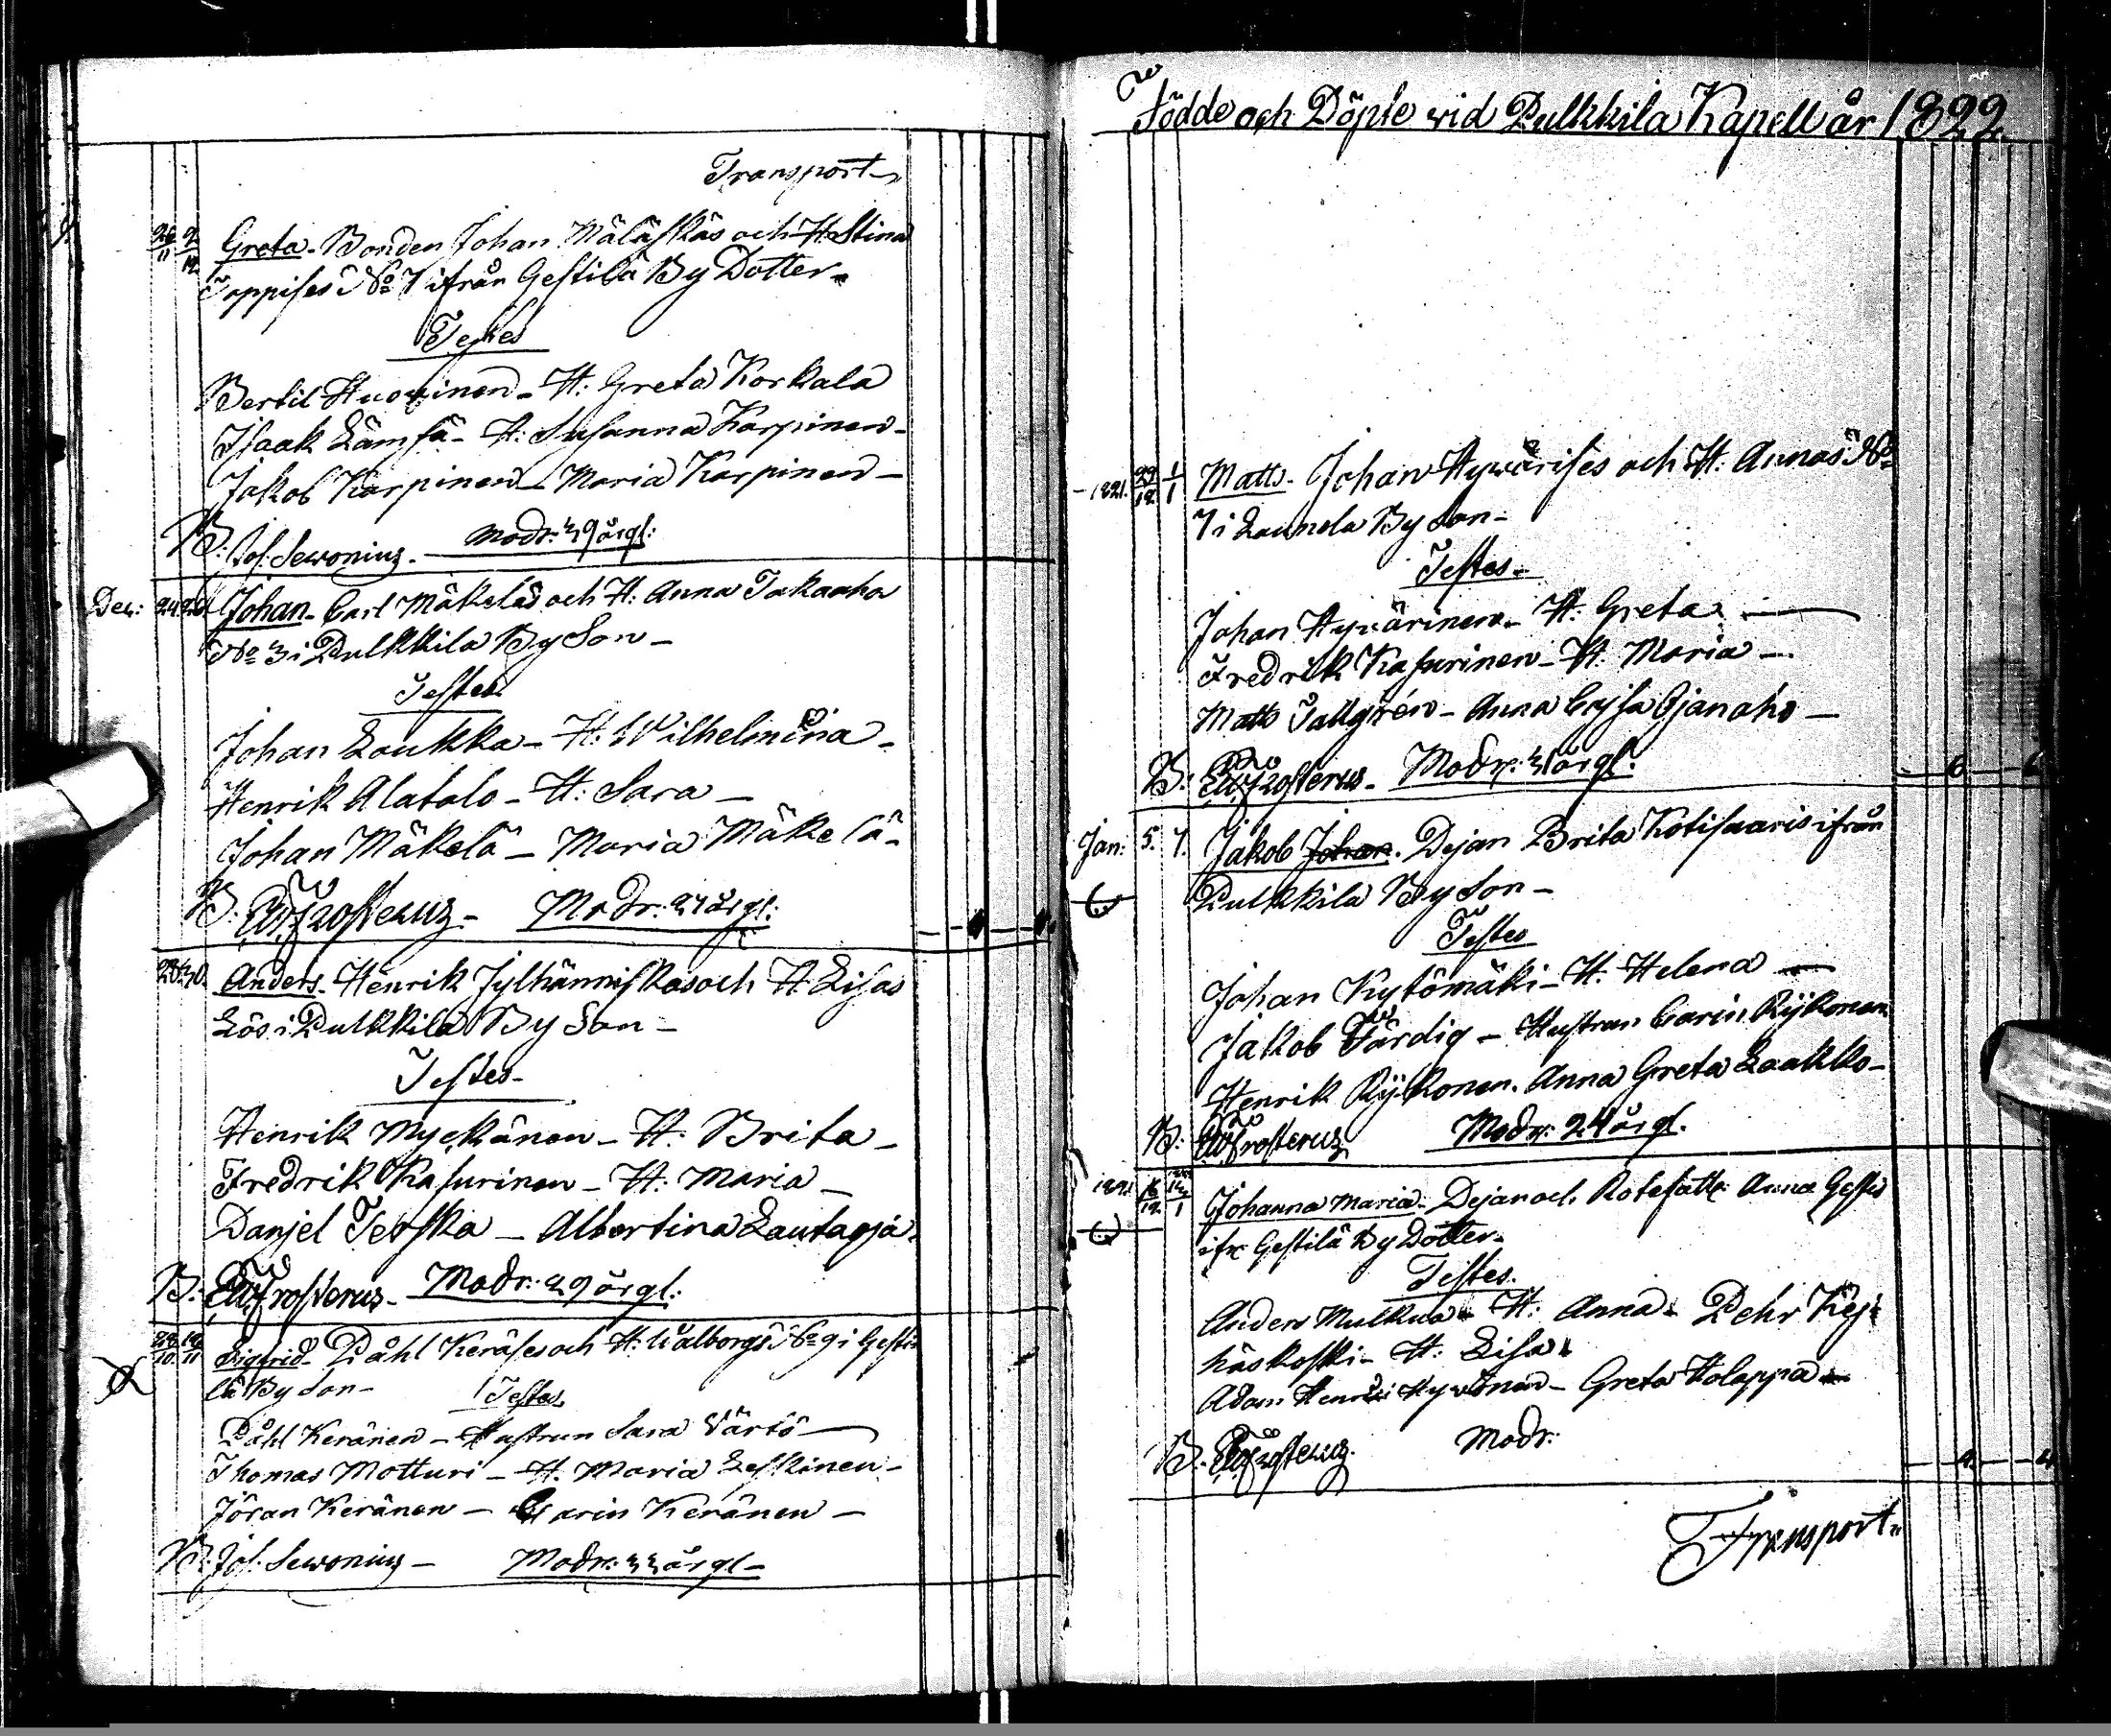 Transport
26/11 2/12 Greta. Bonden Johan Mäläskäs och H. Stina
Toppises No 7 ifrån Gestilä By Dotter
Testes
Bertil Huovinen - H: Greta Korkala
Isaak Lämsä - H: Susanna Karpinen -
Jakob Karpinen - Maria Karpinen -
B: Jos: Sewonius. Modr: 39 år gl:
Dec: 24. Johan - Carl Mäkeläs och H: Anna Takaaho
No 3 i Pulkkila By Son -
Testes
Johan Laukka - H: Wilhelmina -
Henrik Alatalo - H: Sara -
Johan Mäkelä - Maria Mäkelä -
B: Frosterus - Modr: 21 år gl:
28. 30. Anders. Henrik Jylhänniskas och H: Lisas
Lös i Pulkkila By Son -
Testes -
Henrik Myckänen - H: Brita -
Fredrik Kasurinen - H: Maria -
Danjel Terska - Albertina Lautaoja.
B: Frosterus - Modr: 29 år gl:
10. 11 Sigfrid - Påhl Keräses och H: Walborgs No 9 i Gesti-
lä By Son - Testes
Påhl Keränen - Hustrun Sara Värtö -
Thomas Motturi - H. Maria Leskinen -
Jöran Keränen - Carin Keränen -
B. Jos. Sewonius - Modr: 33 år gl -
Födde och Döpte wid Pulkkila Kapell år 1822.
- 1821. 29/12 1/1 Matts - Johan Hywärises och H: Annas No
7 i Launola By Son -
Testes -
Johan Hyvärinen - H: Greta -
Fredrik Kasurinen - H: Maria -
Matts Tallgrén - Anna Cajsa Ojanaho -
B: Frosterus - Modr: 31 år gl.
Jan: 5. 7. Jakob Johan. Pejan Brita Kotisaaris ifrån
Pulkkila By Son -
Testes
Johan Kytömäki - H. Helena -
Jakob Färdig - Hustrun Carin Rykonen
Henrik Rykonen. Anna Greta Laakko -
B: Frosterus Modr: 24 år gl.
1821 16/12 Johanna Maria - Pejan och Rotefatt: Anna
ifr: Gestilä By Dotter -
Testes.
Anders Mulkua - H: Anna - Pehr Kej-
häskoski - H: Lisa
Adam Hywönen - Greta Holappa -
B. Frosterus. Modr:
Transport